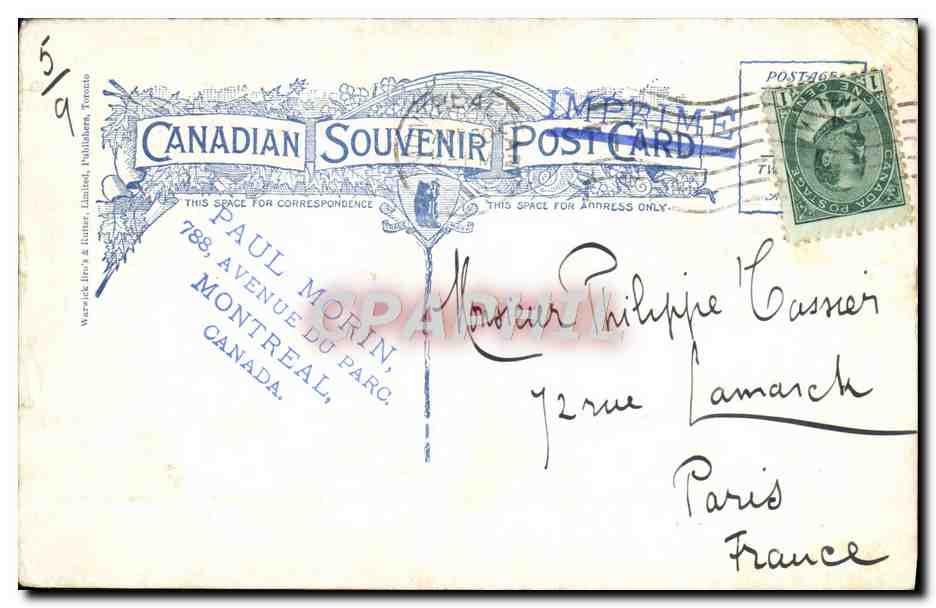 5/9
Warwick Bro's & Rutter, Limited, Publishers, Toronto
CANADIAN SOUVENIR POST CARD
IMPRIMÉ
POSTAGE
1 ONE CENT 1
CANADA POSTAGE
THIS SPACE FOR CORRESPONDENCE
THIS SPACE FOR ADDRESS ONLY.
PAUL MORIN,
788, AVENUE DU PARC.
MONTREAL,
CANADA.
CPARAMA
Monsieur Philippe Tassier
72 rue Lamarck
Paris
France